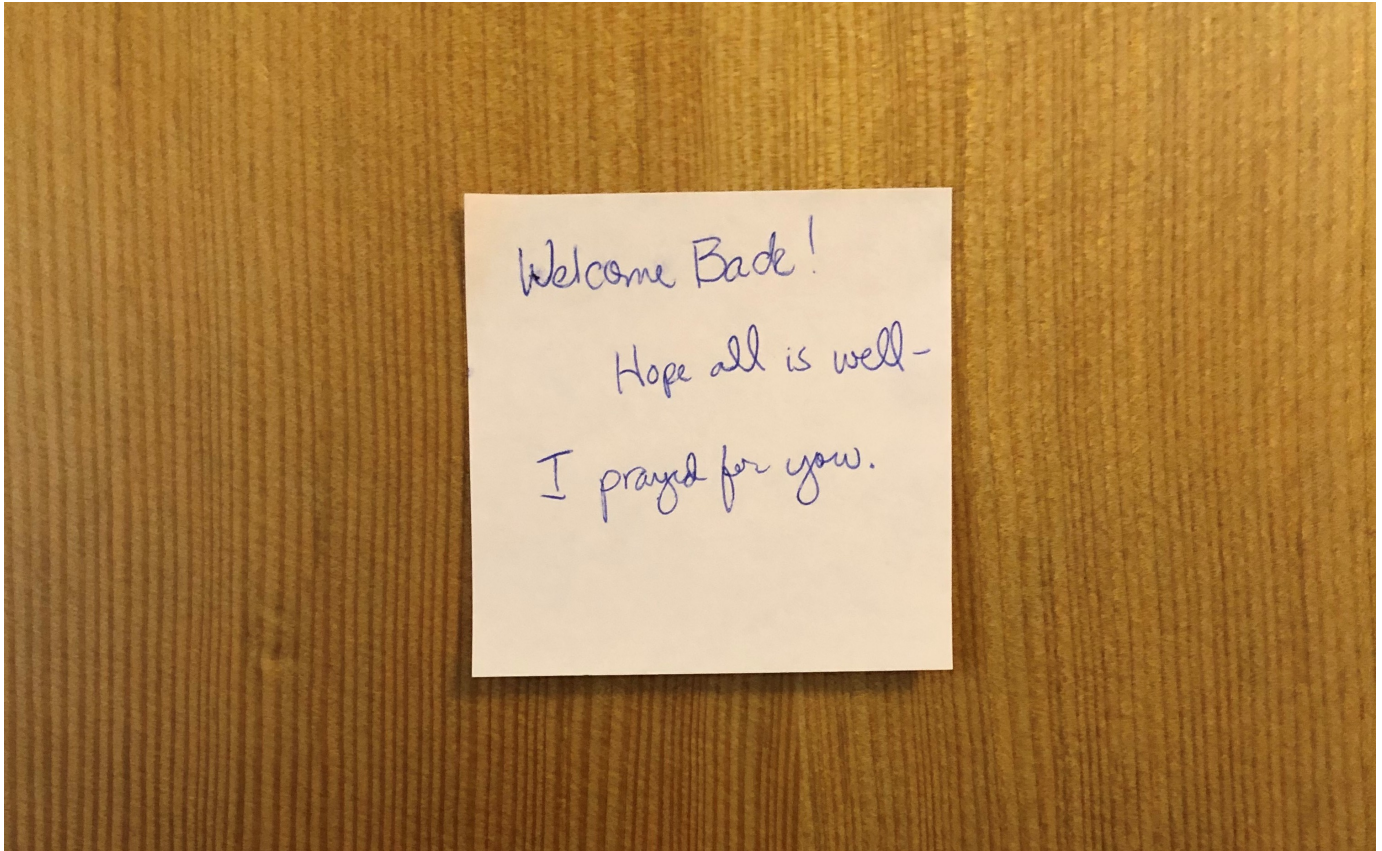 Welcome Back!
Hope all is well-
I prayed for you.